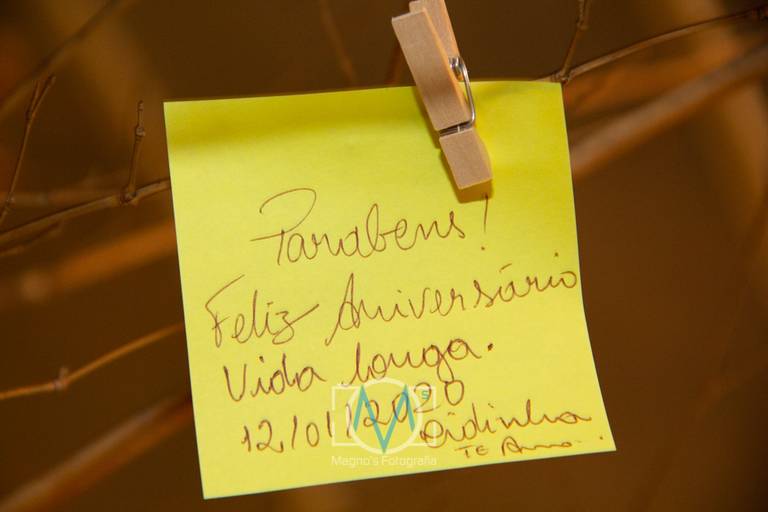 Parabens!
Feliz Aniversário
Vida longa.
12/01/2020
Didinha
TE Amo.
MS
Magno's Fotografia